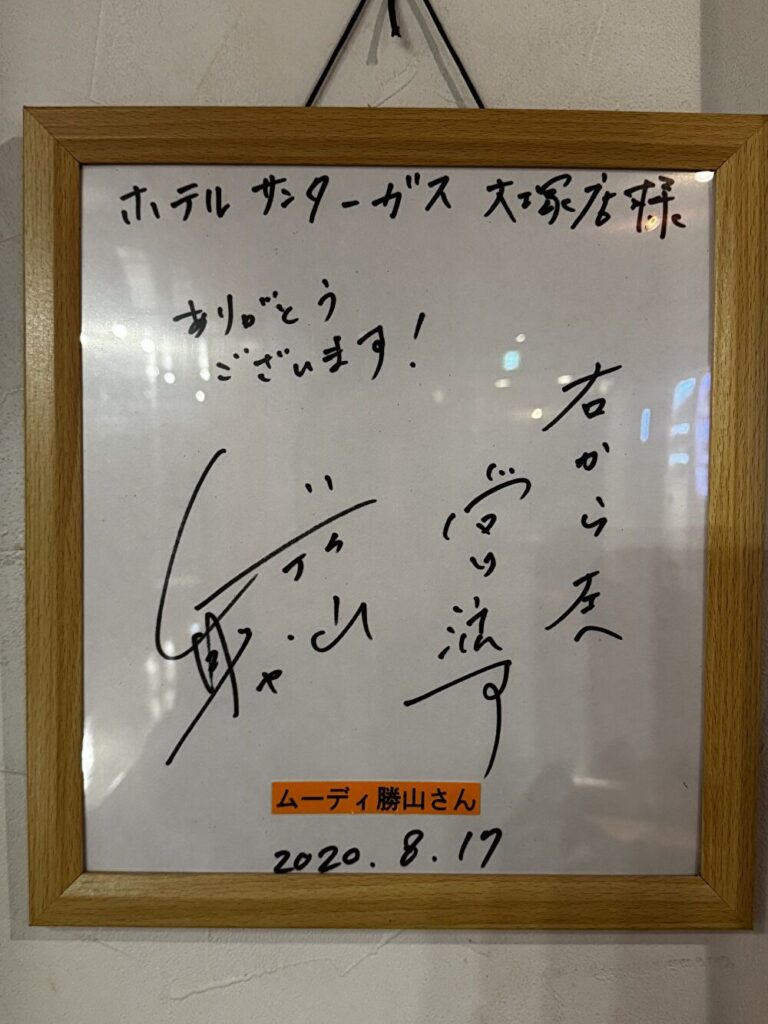 ホテル サンターガス 大塚店様
ありがとう
ございます!
右から左へ
受け流す
ムーディ勝山さん
2020.8.17